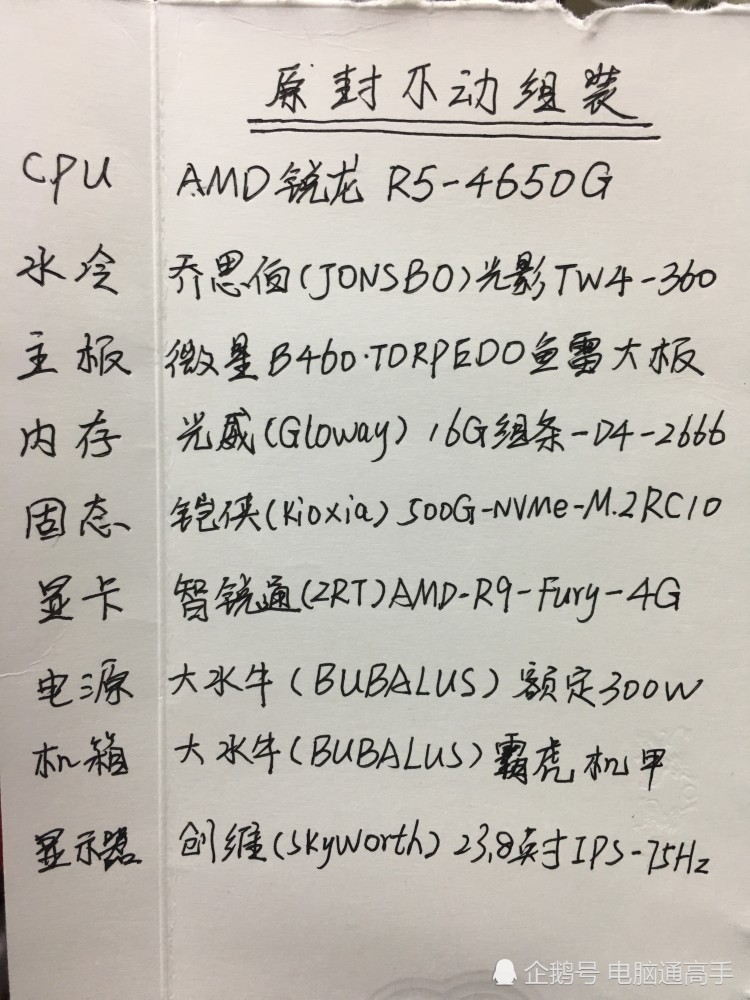 原封不动组装
CPU AMD锐龙 R5-4650G
水冷 乔思伯(JONSBO)光影TW4-360
主板 微星B460·TORPEDO鱼雷大板
内存 光威(Gloway)16G组条-D4-2666
固态 铠侠(Kioxia)500G-NVMe-M.2RC10
显卡 智锐通(ZRT)AMD-R9-Fury-4G
电源 大水牛(BUBALUS)额定300W
机箱 大水牛(BUBALUS)霸虎机甲
显示器 创维(Skyworth)23.8英寸IPS-75Hz
企鹅号 电脑通高手